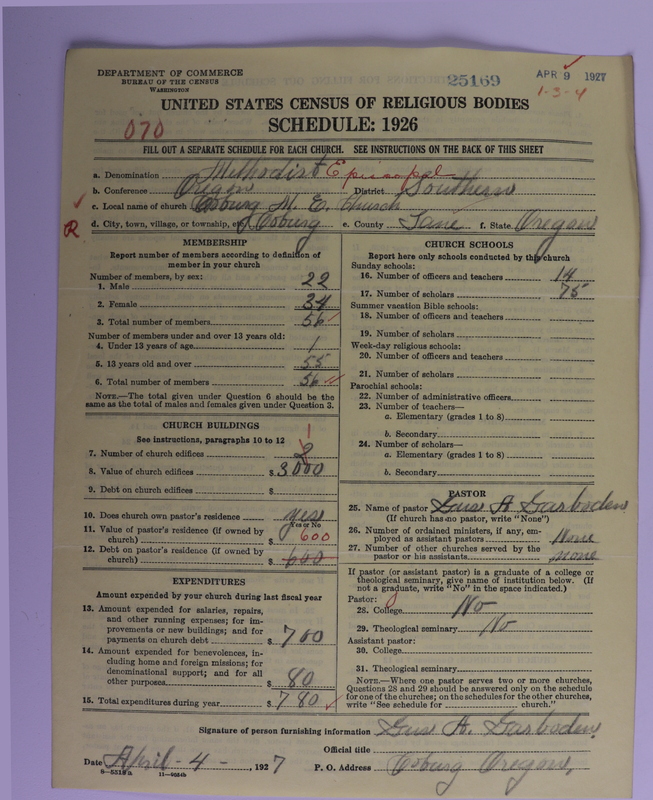 DEPARTMENT OF COMMERCE
BUREAU OF THE CENSUS
WASHINGTON
25169
APR 9 1927
1-3-4
UNITED STATES CENSUS OF RELIGIOUS BODIES
070
SCHEDULE: 1926
FILL OUT A SEPARATE SCHEDULE FOR EACH CHURCH. SEE INSTRUCTIONS ON THE BACK OF THIS SHEET
a. Denomination Methodist Episcopal
b. Conference Oregon District Southern
c. Local name of church Coburg M. E. Church
R
d. City, town, village, or township, etc. Coburg e. County Lane f. State Oregon
MEMBERSHIP
Report number of members according to definition of
member in your church
Number of members, by sex:
1. Male 22
2. Female 34
3. Total number of members 56
Number of members under and over 13 years old:
4. Under 13 years of age 1
5. 13 years old and over 55
6. Total number of members 56
NOTE.—The total given under Question 6 should be the
same as the total of males and females given under Question 3.
CHURCH BUILDINGS
See instructions, paragraphs 10 to 12
1
7. Number of church edifices 2
8. Value of church edifices $3000
9. Debt on church edifices $
10. Does church own pastor's residence yes
Yes or No
11. Value of pastor's residence (if owned by
church) $ 600
12. Debt on pastor's residence (if owned by
church) $ 600
EXPENDITURES
Amount expended by your church during last fiscal year
13. Amount expended for salaries, repairs,
and other running expenses; for im-
provements or new buildings; and for
payments on church debt $ 700
14. Amount expended for benevolences, in-
cluding home and foreign missions; for
denominational support; and for all
other purposes $ 80
15. Total expenditures during year $ 780
CHURCH SCHOOLS
Report here only schools conducted by this church
Sunday schools:
16. Number of officers and teachers 14
17. Number of scholars 75
Summer vacation Bible schools:
18. Number of officers and teachers
19. Number of scholars
Week-day religious schools:
20. Number of officers and teachers
21. Number of scholars
Parochial schools:
22. Number of administrative officers
23. Number of teachers—
a. Elementary (grades 1 to 8)
b. Secondary
24. Number of scholars—
a. Elementary (grades 1 to 8)
b. Secondary
PASTOR
25. Name of pastor Gus A Garboden
(If church has no pastor, write "None")
26. Number of ordained ministers, if any, em-
ployed as assistant pastors None
27. Number of other churches served by the
pastor or his assistants none
If pastor (or assistant pastor) is a graduate of a college or
theological seminary, give name of institution below. (If
not a graduate, write "No" in the space indicated.)
Pastor: 0
28. College No
29. Theological seminary No
Assistant pastor:
30. College
31. Theological seminary
NOTE.—Where one pastor serves two or more churches,
Questions 28 and 29 should be answered only on the schedule
for one of the churches; on the schedules for the other churches,
write "See schedule for church."
Signature of person furnishing information Gus A. Garboden
Official title
Date April - 4 - , 1927 P. O. Address Coburg Oregon.
8—5518a 11—9054b